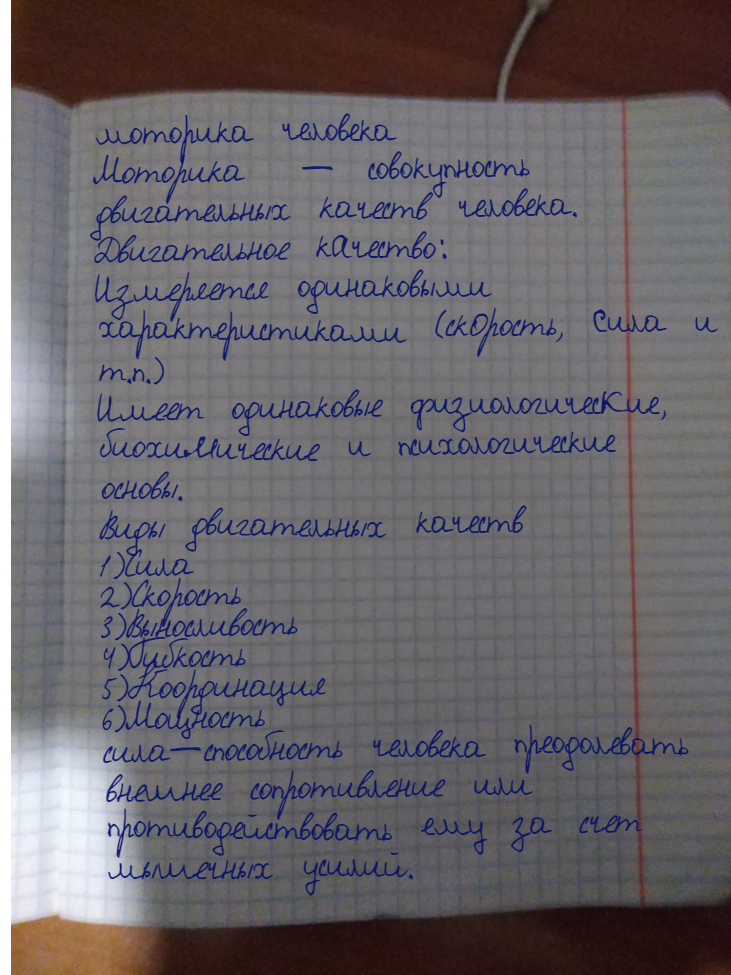 моторика человека
Моторика — совокупность
двигательных качеств человека.
Двигательное качество:
Измеряется одинаковыми
характеристиками (скорость, сила и
т.п.)
Имеет одинаковые физиологические,
биохимические и психологические
основы.
Виды двигательных качеств
1)Сила
2)Скорость
3)Выносливость
4)Гибкость
5)Координация
6)Мощность
сила—способность человека преодолевать
внешнее сопротивление или
противодействовать ему за счет
мышечных усилий.